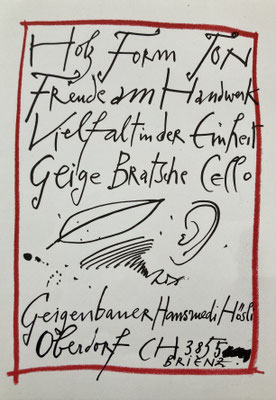 Holz Form Ton
Freude am Handwerk
Vielfalt in der Einheit
Geige Bratsche Cello
Geigenbauer Hansruedi Hösli
Oberdorf CH 3855
BRIENZ